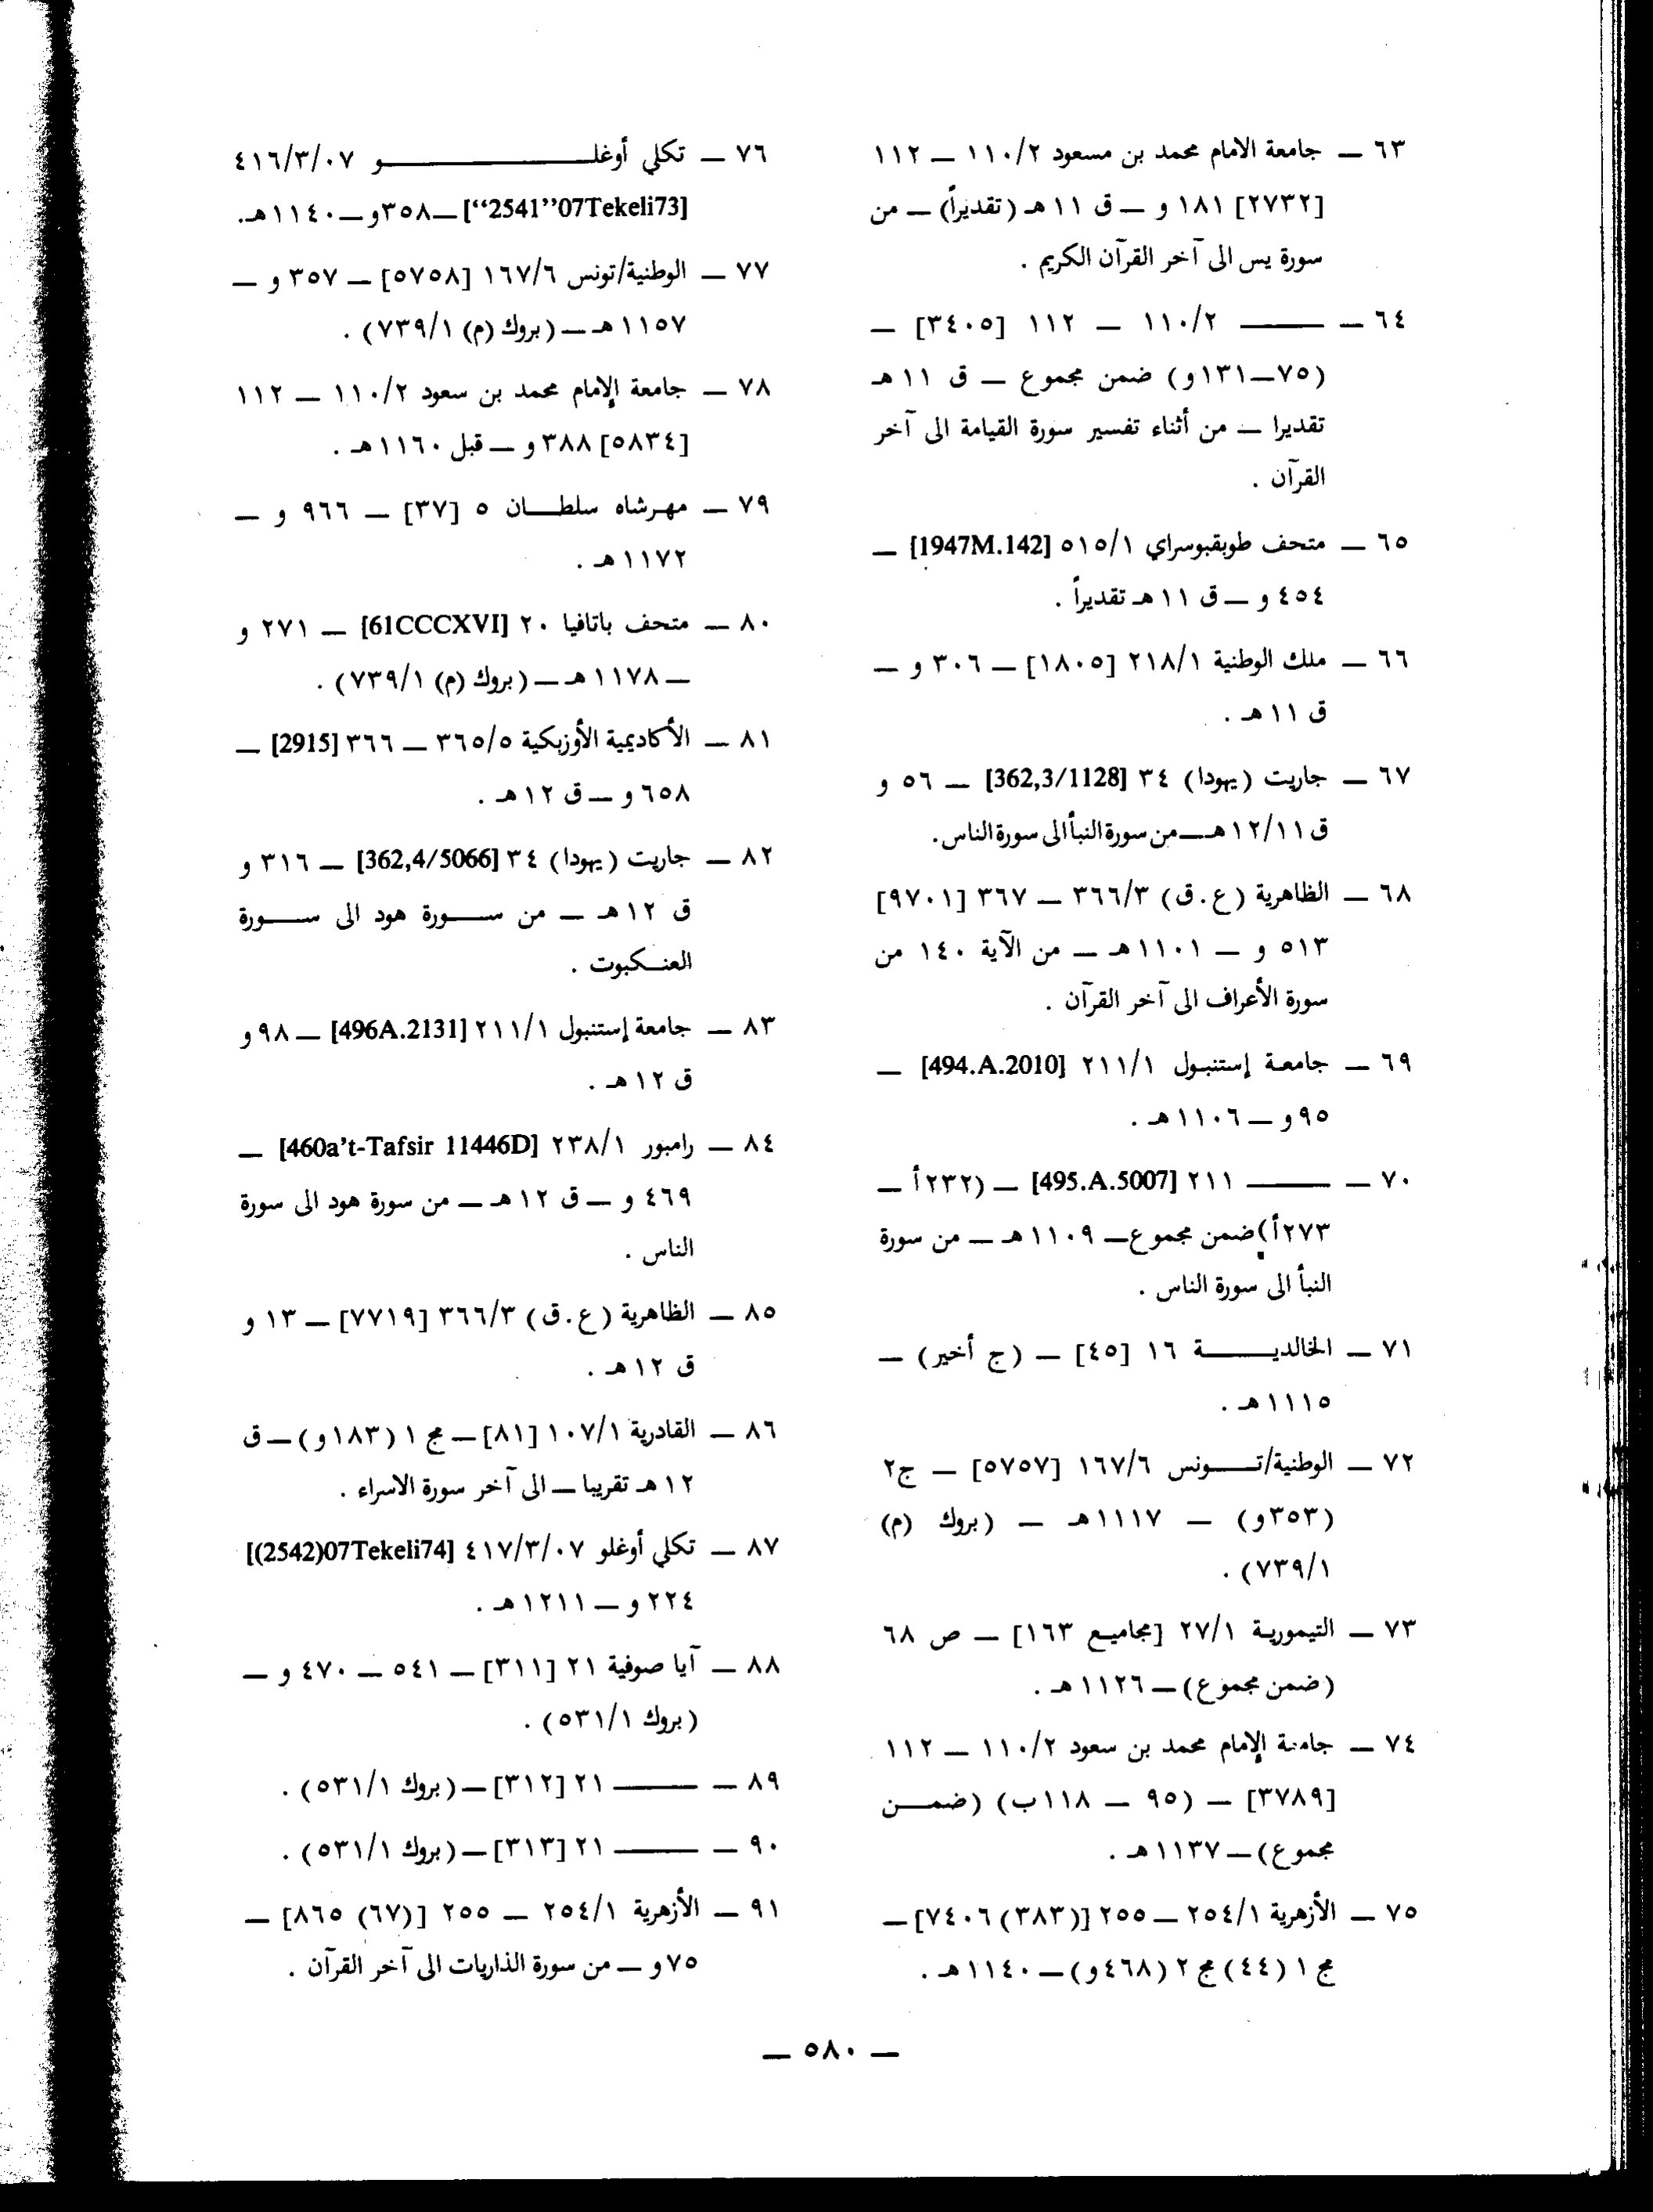 ٦٣ — جامعة الامام محمد بن مسعود ١١٠/٢ — ١١٢
[٢٧٣٢] ١٨١ و — ق ١١ هـ (تقديراً) — من
سورة يس الى آخر القرآن الكريم .
٦٤ — ——— ١١٠/٢ — ١١٢ [٣٤٠٥] —
(٧٥—١٣١و) ضمن مجموع — ق ١١ هـ
تقديرا — من أثناء تفسير سورة القيامة الى آخر
القرآن .
٦٥ — متحف طوبقبوسراي ٥١٥/١ [1947M.142] —
٤٥٤ و — ق ١١ هـ تقديراً .
٦٦ — ملك الوطنية ٢١٨/١ [١٨٠٥] — ٣٠٦ و —
ق ١١ هـ .
٦٧ — جاريت (يهودا) ٣٤ [362,3/1128] — ٥٦ و
ق ١٢/١١ هـ — من سورة النبأ الى سورة الناس.
٦٨ — الظاهرية (ع . ق) ٣٦٦/٣ — ٣٦٧ [٩٧٠١]
٥١٣ و — ١١٠١ هـ — من الآية ١٤٠ من
سورة الأعراف الى آخر القرآن .
٦٩ — جامعة إستنبول ٢١١/١ [494.A.2010] —
٩٥ و — ١١٠٦ هـ .
٧٠ — ——— ٢١١ [495.A.5007] — (٢٣٢أ —
٢٧٣أ) ضمن مجموع — ١١٠٩ هـ — من سورة
النبأ الى سورة الناس .
٧١ — الخالديـــــة ١٦ [٤٥] — (ج أخير) —
١١١٥ هـ .
٧٢ — الوطنية/تــــونس ١٦٧/٦ [٥٧٥٧] — ج٢
(٣٥٣و) — ١١١٧ هـ — (بروك (م)
٧٣٩/١) .
٧٣ — التيمورية ٢٧/١ [مجاميع ١٦٣] — ص ٦٨
(ضمن مجموع) — ١١٢٦ هـ .
٧٤ — جامعة الإمام محمد بن سعود ١١٠/٢ — ١١٢
[٣٧٨٩] — (٩٥ — ١١٨ب) (ضمـــن
مجموع) — ١١٣٧ هـ .
٧٥ — الأزهرية ٢٥٤/١ — ٢٥٥ [(٣٨٣) ٧٤٠٦] —
مج ١ (٤٤) مج ٢ (٤٦٨و) — ١١٤٠ هـ .
٧٦ — تكلي أوغلـــــــــــو ٤١٦/٣/٠٧
[“2541”07Tekeli73] — ٣٥٨و — ١١٤٠ هـ.
٧٧ — الوطنية/تونس ١٦٧/٦ [٥٧٥٨] — ٣٥٧ و —
١١٥٧ هـ — (بروك (م) ٧٣٩/١) .
٧٨ — جامعة الإمام محمد بن سعود ١١٠/٢ — ١١٢
[٥٨٣٤] ٣٨٨ و — قبل ١١٦٠ هـ .
٧٩ — مهرشاه سلطــــان ٥ [٣٧] — ٩٦٦ و —
١١٧٢ هـ .
٨٠ — متحف باتافيا ٢٠ [61CCCXVI] — ٢٧١ و
— ١١٧٨ هـ — (بروك (م) ٧٣٩/١) .
٨١ — الأكاديمية الأوزبكية ٣٦٥/٥ — ٣٦٦ [2915] —
٦٥٨ و — ق ١٢ هـ .
٨٢ — جاريت (يهودا) ٣٤ [362,4/5066] — ٣١٦ و
ق ١٢ هـ — من ســـورة هود الى ســـورة
العنــكبوت .
٨٣ — جامعة إستنبول ٢١١/١ [496A.2131] — ٩٨ و
ق ١٢ هـ .
٨٤ — رامبور ٢٣٨/١ [460a't-Tafsir 11446D] —
٤٦٩ و — ق ١٢ هـ — من سورة هود الى سورة
الناس .
٨٥ — الظاهرية (ع . ق) ٣٦٦/٣ [٧٧١٩] — ١٣ و
ق ١٢ هـ .
٨٦ — القادرية ١٠٧/١ [٨١] — مج ١ (١٨٣و) — ق
١٢ هـ تقريبا — الى آخر سورة الاسراء .
٨٧ — تكلي أوغلو ٤١٧/٣/٠٧ [(2542)07Tekeli74]
٢٢٤ و — ١٢١١ هـ .
٨٨ — آيا صوفية ٢١ [٣١١] — ٥٤١ — ٤٧٠ و —
(بروك ٥٣١/١) .
٨٩ — ——— ٢١ [٣١٢] — (بروك ٥٣١/١) .
٩٠ — ——— ٢١ [٣١٣] — (بروك ٥٣١/١) .
٩١ — الأزهرية ٢٥٤/١ — ٢٥٥ [(٦٧) ٨٦٥] —
٧٥ و — من سورة الذاريات الى آخر القرآن .
— ٥٨٠ —